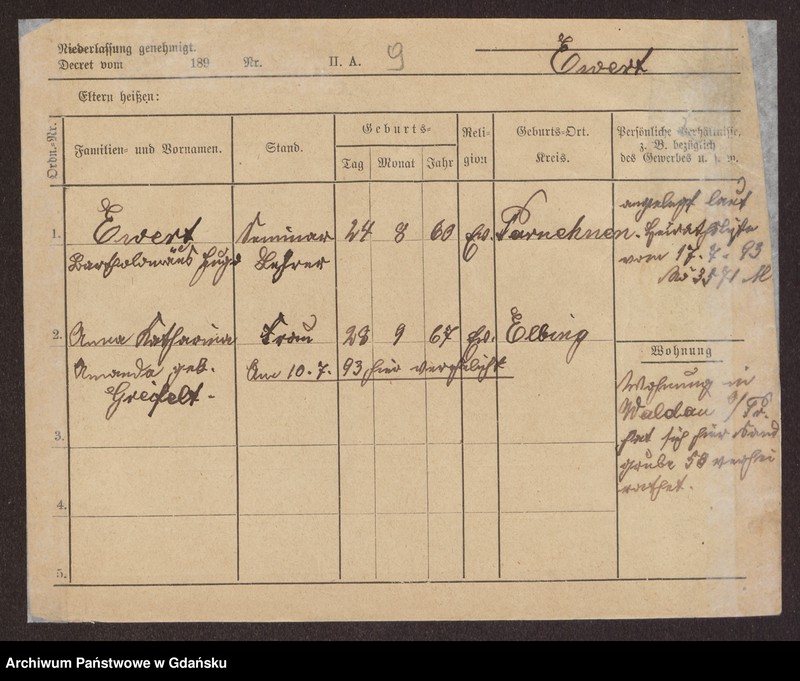 Niederlassung genehmigt.
Decret vom 189 Nr. II. A. 9
Ewert
Eltern heißen:
Ordn.-Nr.
Familien- und Vornamen.
Stand.
Geburts-
Tag Monat Jahr
Reli-
gion
Geburts-Ort.
Kreis.
Persönliche Verhältnisse,
z. B. bezüglich
des Gewerbes u. s. w.
1. Ewert Seminar 24 8 60 Ev. Parnehnen.
Bartholomäus Hugo Lehrer
angelegt laut
Heirathsliste
vom 17. 7. 93
No 3571 M
2. Anna Katharina Frau 28 9 67 Ev. Elbing
Amanda geb. Am 10. 7. 93 hier verehelicht
Greifelt.
Wohnung
Wohnung in
Waldau O/Pr.
hat sich hier Sand
grube 58 verhei
rathet.
3.
4.
5.
Archiwum Państwowe w Gdańsku